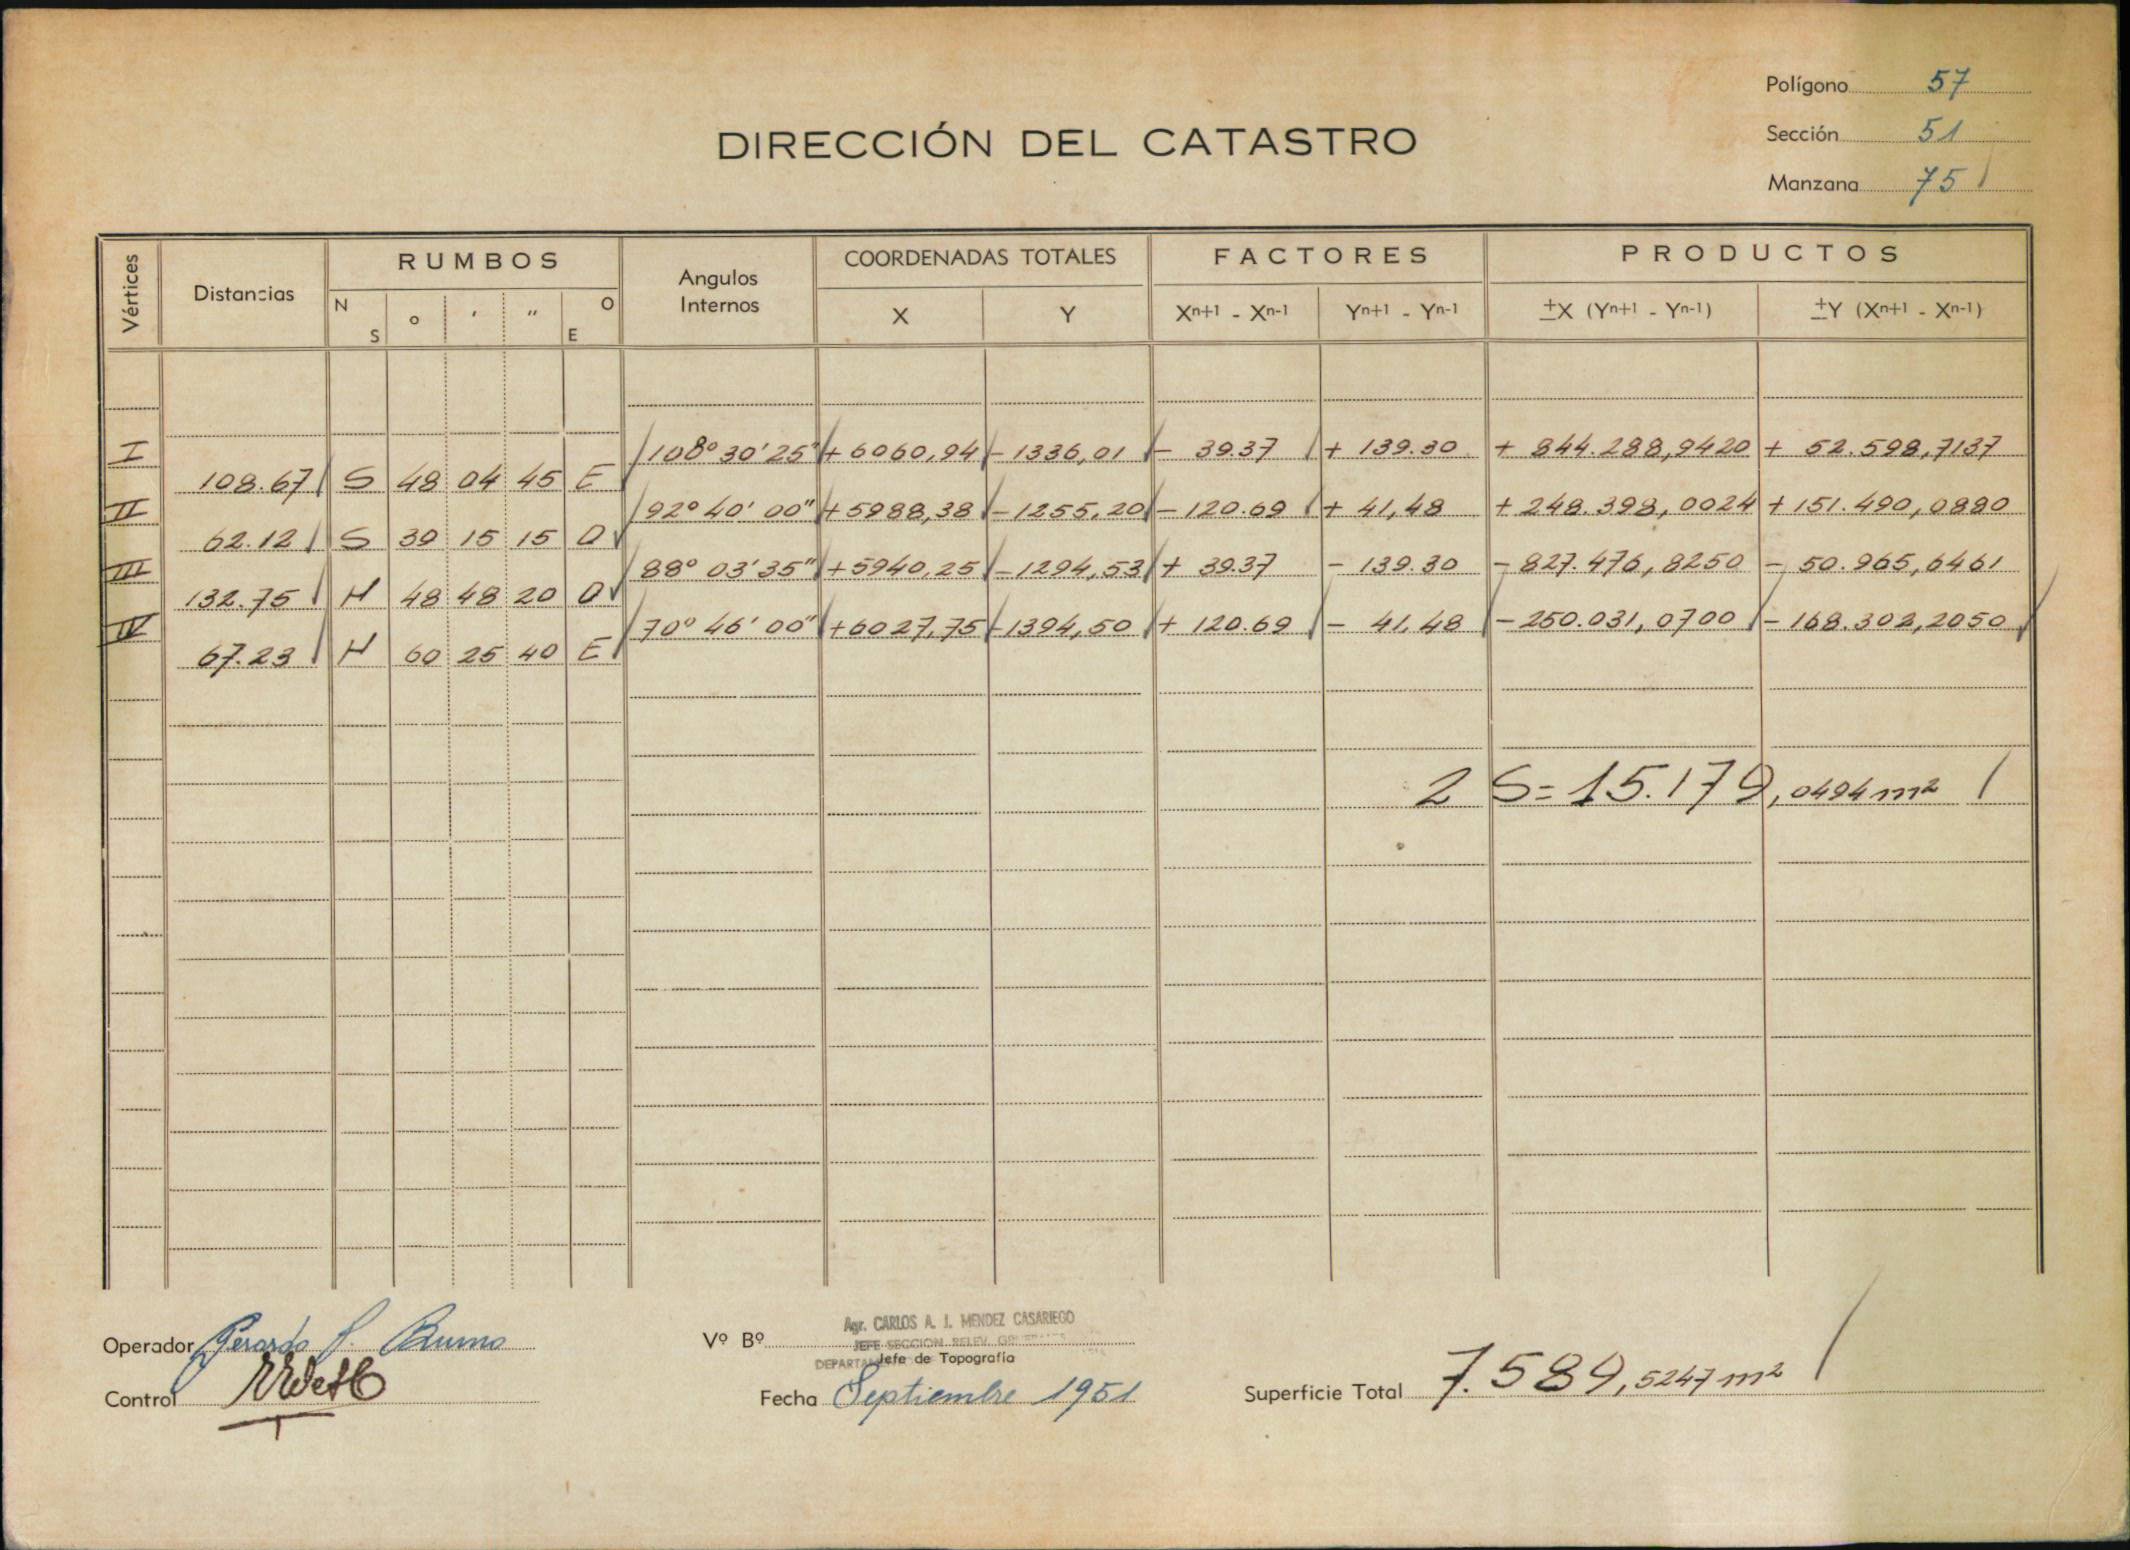 Polígono 57
DIRECCIÓN DEL CATASTRO
Sección 51
Manzana 75
Vértices Distancias RUMBOS Angulos Internos COORDENADAS TOTALES FACTORES PRODUCTOS
N S o ′ ″ O E X Y Xn+1 - Xn-1 Yn+1 - Yn-1 ±X (Yn+1 - Yn-1) ±Y (Xn+1 - Xn-1)
I 108°30'25" +6060,94 -1336,01 - 39.37 + 139.30 + 844.288,9420 + 52.598,7137
108.67 S 48 04 45 E
II 92° 40' 00" +5988,38 -1255,20 -120.69 + 41,48 +248.398,0024 +151.490,0880
62.12 S 39 15 15 O
III 88° 03'35" +5940,25 -1294,53 + 39.37 - 139.30 -827.476,8250 - 50.965,6461
132.75 N 48 48 20 O
IV 70° 46'00" +6027,75 -1394,50 + 120.69 - 41.48 -250.031,0700 -168.302,2050
67.23 N 60 25 40 E
2 S = 15.179,0494 m²
Operador Gerardo Bruno
Vº Bº Agr. CARLOS A. J. MENDEZ CASARIEGO
JEFE SECCION RELEV.
Jefe de Topografía
Control
Fecha Septiembre 1951
Superficie Total 7.589,5247 m²